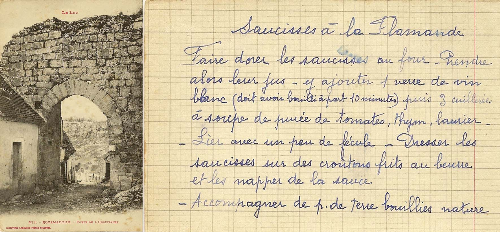 Le Lot
Saucisses à la Flamande
Faire dorer les saucisses au four - Prendre
alors leur jus - y ajouter 1 verre de vin
blanc (doit avoir bouilli à part 10 minutes) puis 3 cuillerées
à soupe de purée de tomates, thym, laurier -
- Lier avec un peu de fécule - Dresser les
saucisses sur des croûtons frits au beurre
et les napper de la sauce
- Accompagner de p. de terre bouillies nature